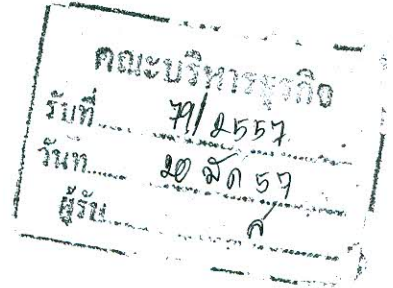 คณะบริหารธุรกิจ
รับที่ 79/2557
วันที่ 20 มีค 57
ผู้รับ